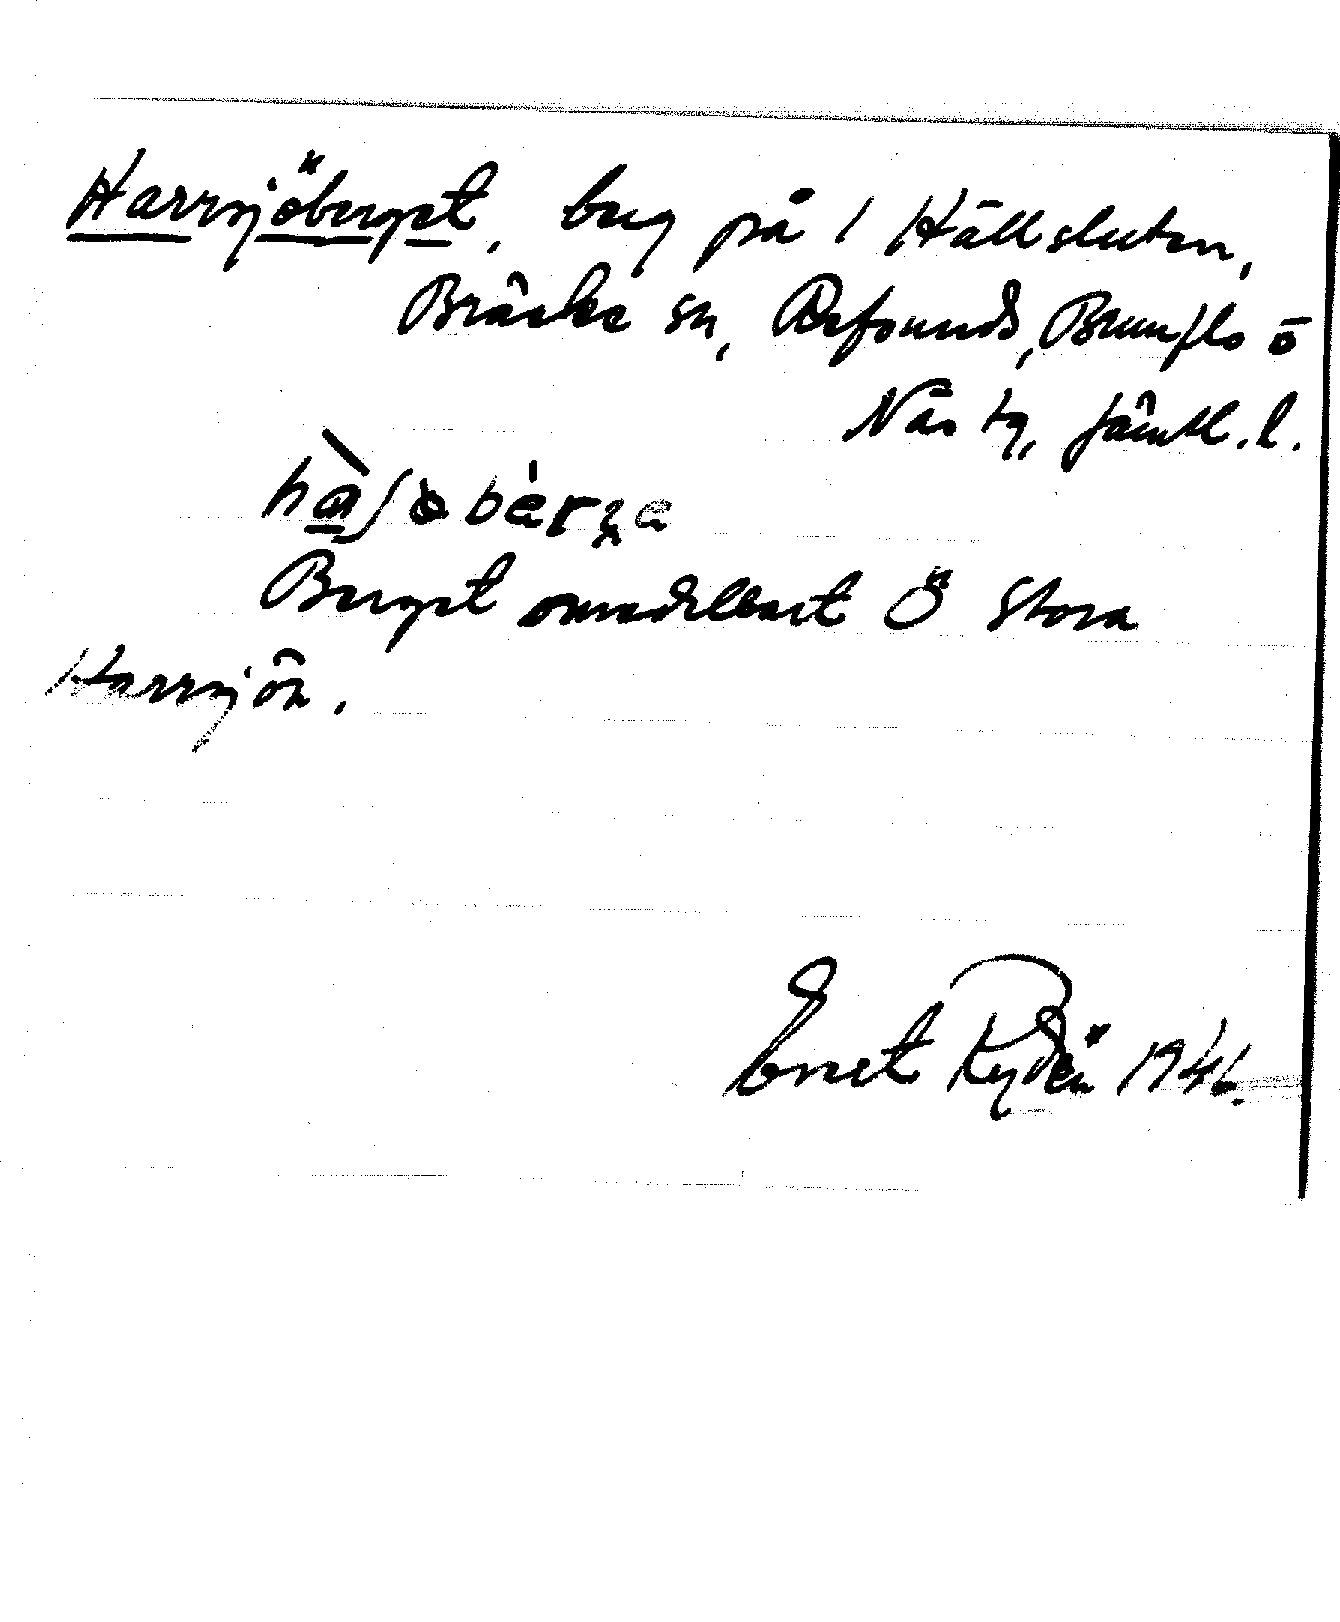 Harrsjöberget, berg på 1 Hällsluten,
Bräcke sn, Refsunds, Brunflo o
Näs tg, Jämtl. l.
Berget omedelbart Ö Stora
Harrsjön.
Ernet Rydén 1946.